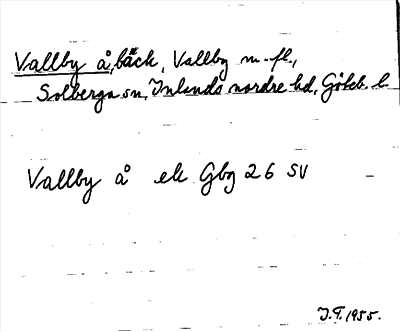 Vallby å, bäck, Vallby m.fl.,
Solberga sn, Inlands nordre hd, Göteb. l.
Vallby å ek Gbg 26 SV
J.F. 1955.